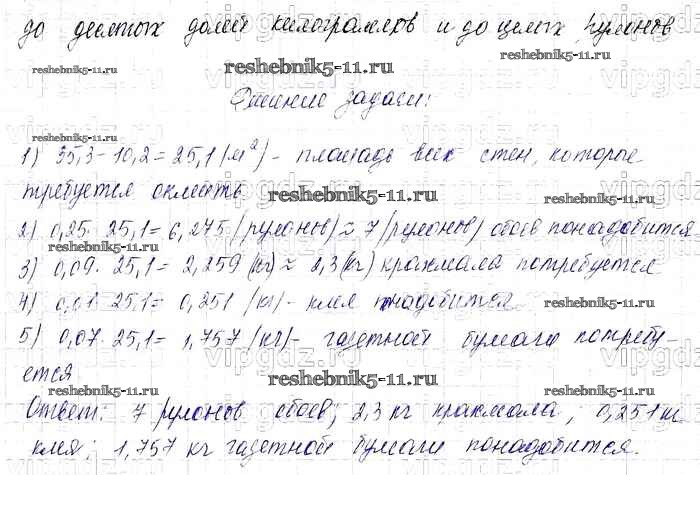 до десятых долей килограммов и до целых рулонов
reshebnik5-11.ru reshebnik5-11.ru
Решение задачи:
reshebnik5-11.ru
1) 35,3-10,2=25,1 (м²) - площадь всех стен, которые
требуется оклеить
reshebnik5-11.ru
2) 0,25·25,1=6,275 (рулонов) ≈ 7 (рулонов) обоев понадобится
reshebnik5-11.ru
3) 0,09·25,1=2,259 (кг) ≈ 2,3 (кг) крахмала потребуется
4) 0,01·25,1=0,251 (кг) - клея понадобится
reshebnik5-11.ru
5) 0,07·25,1=1,757 (кг) - газетной бумаги потребу-
ется
reshebnik5-11.ru reshebnik5-11.ru
Ответ: 7 рулонов обоев; 2,3 кг крахмала; 0,251 кг
клея; 1,757 кг газетной бумаги понадобится.